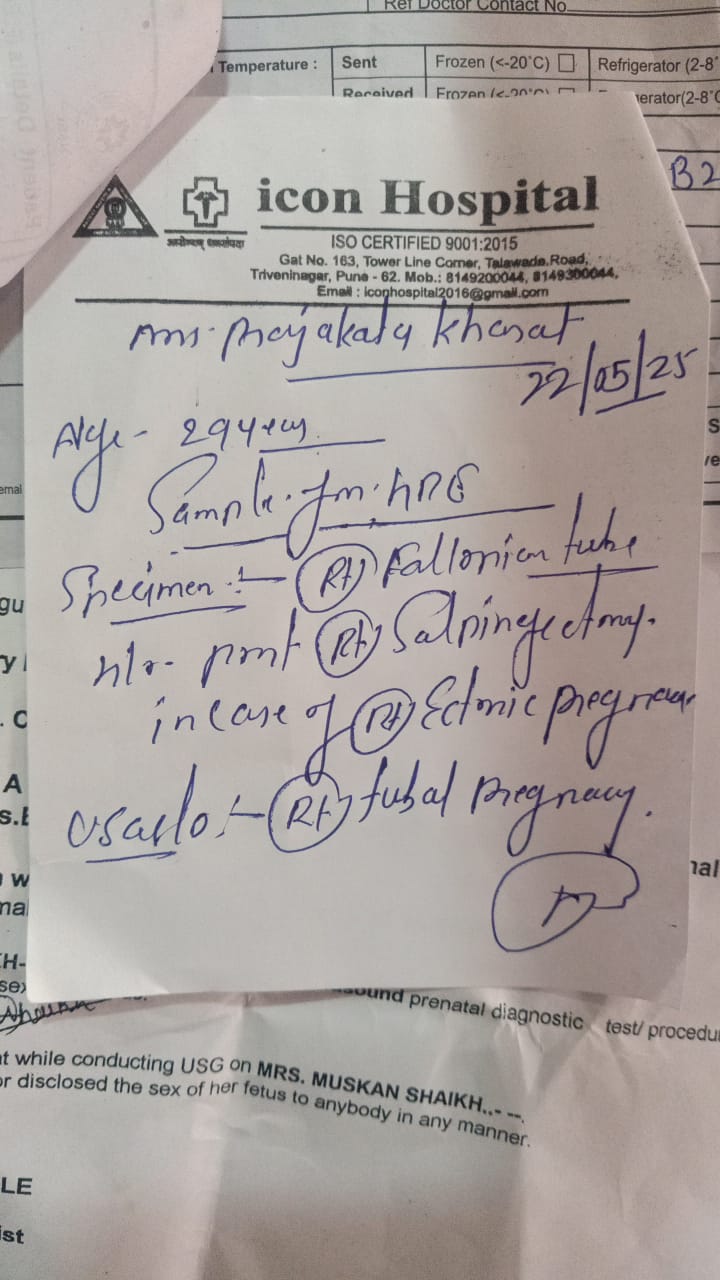 Ref Doctor Contact No
Temperature : Sent Frozen (<-20°C) Refrigerator (2-8°
Received Frozen (<-20°C) erator(2-8°C
B2
icon Hospital
आरोग्यम् धनसंपदा
ISO CERTIFIED 9001:2015
Gat No. 163, Tower Line Corner, Talawade Road,
Triveninagar, Pune - 62. Mob.: 8149200044, 8149300044,
Email : iconhospital2016@gmail.com
Mrs. Prajakata Kharat
22/05/25
Age - 29 years
Sample for HPE
Specimen :- (Rt) Fallopian tube
H/o - (Rt) Salpingectomy.
in case of (Rt) Ectopic pregnancy
USG s/o :- (Rt) tubal pregnacy.
gu
y
. C
A
S.E
w
mal
CH-
sex
ound prenatal diagnostic test/ procedu
at while conducting USG on MRS. MUSKAN SHAIKH..- --.
or disclosed the sex of her fetus to anybody in any manner.
LE
ist